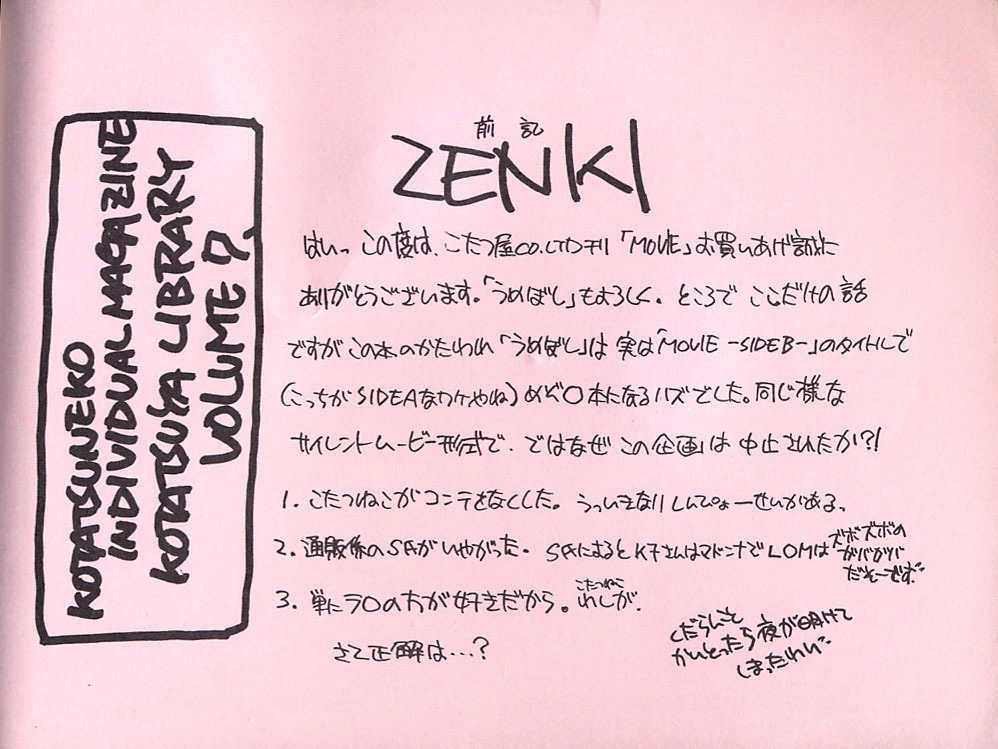 KOTATSUNEKO
INDIVIDUAL MAGAZINE
KOTATSUYA LIBRARY
VOLUME 7.
前記
ZENKI
はいっ この度は、こたつ屋CO.LTD刊「MOVIE」お買いあげ誠に
ありがとうございます。「うめぼし」もよろしく。ところで ここだけの話
ですが この本のかたわれ「うめぼし」は 実は「MOVIE -SIDE B-」のタイトルで
(こっちが SIDE Aなワケやね)めぞ○本になるハズでした。同じ様な
サイレントムービー形式で. ではなぜ この企画は 中止されたか?!
1. こたつねこがコンテをなくした。 うっいきなりしんぴょーせいがある。
2. 通販係のS氏がいやがった. S氏によると K子さんはマドンナで LOMは
ズボズボの
ガバガバ
だそーです.
3. 単にラ○の方が好きだから。わしが.
こたつねこ
さて正解は…?
くだらんこと
かいとったら夜が明けて
しまったわい